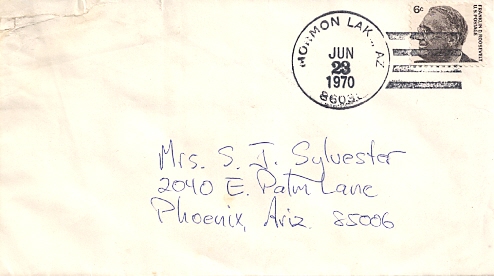 MORMON LAKE, AZ
JUN
23
1970
6¢
FRANKLIN D. ROOSEVELT
U.S. POSTAGE
Mrs. S. J. Sylvester
2040 E. Palm Lane
Phoenix, Ariz. 85006